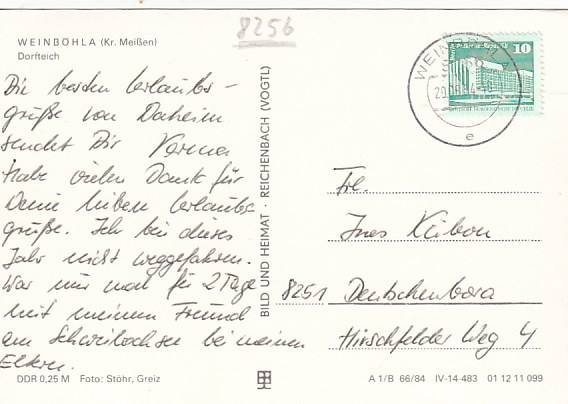 8256
WEINBÖHLA (Kr. Meißen)
Dorfteich
Die besten Urlaubs-
grüße von Daheim
sendet Dir Verena
Habe vielen Dank für
Deine lieben Urlaubs-
grüße. Ich bin dieses
Jahr nicht weggefahren.
War nur mal für 2 Tage
mit meinem Freund
am Schwielochsee bei meinen
Eltern.
DDR 0,25 M Foto: Stöhr, Greiz
BILD UND HEIMAT · REICHENBACH (VOGTL)
WEINBÖHLA
e
10
Frl.
Ines Klibon
8251 Deutschenbora
Hirschfelder Weg 4
A 1/B 66/84 IV-14-483 01 12 11 099